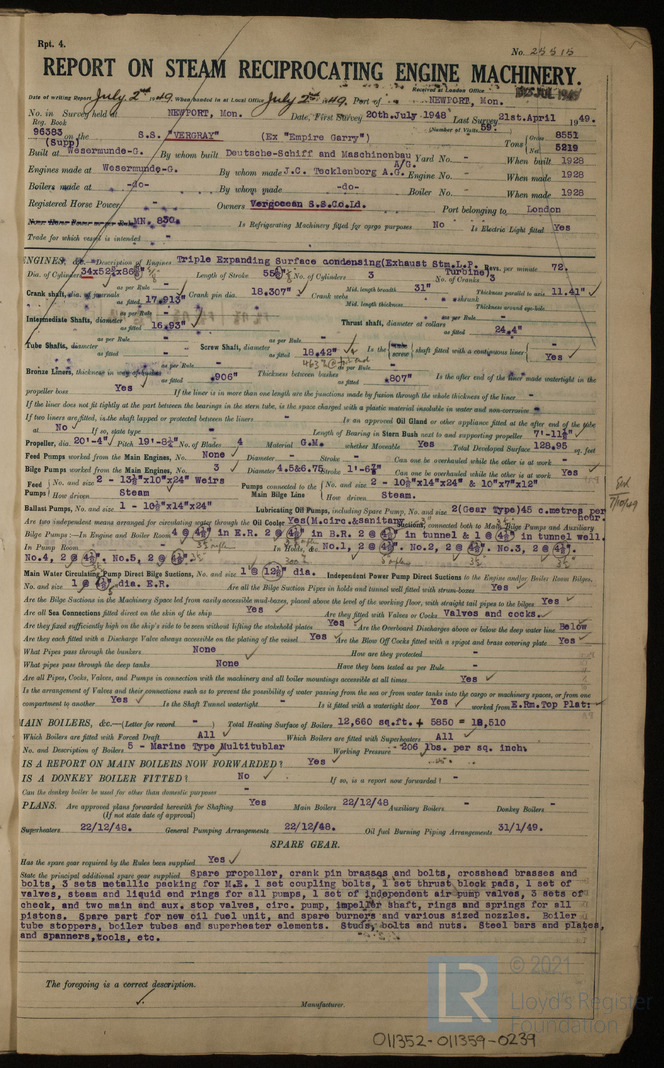 Rpt. 4.
No. 25515
REPORT ON STEAM RECIPROCATING ENGINE MACHINERY.
Received at London Office
Date of writing Report July 2nd 1949. When handed in at Local Office July 2nd 1949. Port of NEWPORT, Mon.
No. in Survey held at NEWPORT, Mon. Date, First Survey 20th.July 1948 Last Survey 21st.April 1949.
Reg. Book (Number of Visits 59.)
96383 on the S.S. "VERGRAY" (Ex "Empire Garry") Tons Gross 8551
(Supp) Net 5219
Built at Wesermunde-G. By whom built Deutsche-Schiff and Maschinenbau A/G. Yard No. - When built 1928
Engines made at Wesermunde-G. By whom made J.C. Tecklenborg A.G. Engine No. - When made 1928
Boilers made at -do- By whom made -do- Boiler No. - When made 1928
Registered Horse Power Owners Vergocean S.S.Co.Ld. Port belonging to London
MN. 830. Is Refrigerating Machinery fitted for cargo purposes No Is Electric Light fitted Yes
Trade for which vessel is intended -
ENGINES, &c.—Description of Engines Triple Expanding Surface condensing(Exhaust Stm.L.P. Turbine) Revs. per minute 72.
Dia. of Cylinders Length of Stroke No. of Cylinders 3 No. of Cranks 3
Crank shaft, dia. of journals as per Rule - as fitted 17.913" Crank pin dia. 18.307" Crank webs Mid. length breadth 31" Thickness parallel to axis 11.41"
Mid. length thickness shrunk Thickness around eye-hole
Intermediate Shafts, diameter as per Rule - as fitted 16.93" Thrust shaft, diameter at collars as per Rule - as fitted 24.4"
Tube Shafts, diameter as per Rule as fitted - Screw Shaft, diameter as per Rule - as fitted 18.42" Is the screw shaft fitted with a continuous liner Yes
Bronze Liners, thickness in way of bushes as per Rule - as fitted .906" Thickness between bushes as per Rule - as fitted .807" Is the after end of the liner made watertight in the
propeller boss Yes If the liner is in more than one length are the junctions made by fusion through the whole thickness of the liner -
If the liner does not fit tightly at the part between the bearings in the stern tube, is the space charged with a plastic material insoluble in water and non-corrosive -
If two liners are fitted, is the shaft lapped or protected between the liners - Is an approved Oil Gland or other appliance fitted at the after end of the tube
at No If so, state type - Length of Bearing in Stern Bush next to and supporting propeller 7'-11½"
Propeller, dia. 20'-4" Pitch No. of Blades 4 Material G.M. whether Moveable Yes Total Developed Surface 128.95 sq. feet
Feed Pumps worked from the Main Engines, No. None Diameter - Stroke - Can one be overhauled while the other is at work -
Bilge Pumps worked from the Main Engines, No. 3 Diameter 4.5&6.75 Stroke Can one be overhauled while the other is at work Yes
Feed Pumps No. and size 2 - 13½"x10"x24" Weirs Pumps connected to the Main Bilge Line No. and size 2 - 10½"x14"x24" & 10"x7"x12"
How driven Steam How driven Steam.
Ballast Pumps, No. and size 1 - 10½"x14"x24" Lubricating Oil Pumps, including Spare Pump, No. and size 2(Gear Type)45 c.metres per hour.
Are two independent means arranged for circulating water through the Oil Cooler Yes(M.circ.&sanitary Suctions, connected both to Main Bilge Pumps and Auxiliary
Bilge Pumps:—In Engine and Boiler Room 4 @ 4½" in E.R. 2 @ 4½" in B.R. 2 @ 4½" in tunnel & 1 @ 4½" in tunnel well.
In Pump Room - In Holds, &c. No.1, 2 @ 4½". No.2, 2 @ 4½". No.3, 2 @ 4½".
No.4, 2 @ 4½". No.5, 2 @ 4½".
Main Water Circulating Pump Direct Bilge Suctions, No. and size 1 @ 12½" dia. Independent Power Pump Direct Suctions to the Engine and/or Boiler Room Bilges,
No. and size 1 @ 4½" dia. E.R. Are all the Bilge Suction Pipes in holds and tunnel well fitted with strum-boxes Yes
Are the Bilge Suctions in the Machinery Space led from easily accessible mud-boxes, placed above the level of the working floor, with straight tail pipes to the bilges Yes
Are all Sea Connections fitted direct on the skin of the ship Yes Are they fitted with Valves or Cocks Valves and cocks.
Are they fixed sufficiently high on the ship's side to be seen without lifting the stokehold plates Yes Are the Overboard Discharges above or below the deep water line Below
Are they each fitted with a Discharge Valve always accessible on the plating of the vessel Yes Are the Blow Off Cocks fitted with a spigot and brass covering plate Yes
What Pipes pass through the bunkers None How are they protected -
What pipes pass through the deep tanks None Have they been tested as per Rule -
Are all Pipes, Cocks, Valves, and Pumps in connection with the machinery and all boiler mountings accessible at all times Yes
Is the arrangement of Valves and their connections such as to prevent the possibility of water passing from the sea or from water tanks into the cargo or machinery spaces, or from one
compartment to another Yes Is the Shaft Tunnel watertight - Is it fitted with a watertight door Yes worked from E.Rm.Top Plat:
MAIN BOILERS, &c.—(Letter for record - ) Total Heating Surface of Boilers 12,660 sq.ft. + 5850 = 18,510
Which Boilers are fitted with Forced Draft All Which Boilers are fitted with Superheaters All
No. and Description of Boilers 5 - Marine Type Multitublar Working Pressure 206 lbs. per sq. inch.
IS A REPORT ON MAIN BOILERS NOW FORWARDED? Yes
IS A DONKEY BOILER FITTED? No If so, is a report now forwarded? -
Can the donkey boiler be used for other than domestic purposes -
PLANS. Are approved plans forwarded herewith for Shafting Yes Main Boilers 22/12/48 Auxiliary Boilers - Donkey Boilers -
(If not state date of approval)
Superheaters 22/12/48. General Pumping Arrangements 22/12/48. Oil fuel Burning Piping Arrangements 31/1/49.
SPARE GEAR.
Has the spare gear required by the Rules been supplied Yes
State the principal additional spare gear supplied Spare propeller, crank pin brasses and bolts, crosshead brasses and
bolts, 3 sets metallic packing for M.E. 1 set coupling bolts, 1 set thrust block pads, 1 set of
valves, steam and liquid end rings for all pumps, 1 set of independent air pump valves, 3 sets of
check, and two main and aux. stop valves, circ. pump, impeller shaft, rings and springs for all
pistons. Spare part for new oil fuel unit, and spare burners and various sized nozzles. Boiler
tube stoppers, boiler tubes and superheater elements. Studs, bolts and nuts. Steel bars and plates,
and spanners,tools, etc.
The foregoing is a correct description.
Manufacturer.
© 2021
LR
Lloyd's Register
Foundation
011352-011359-0239